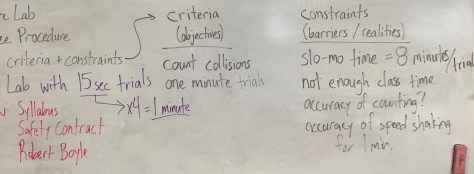 Lab
Procedure
criteria + constraints
Lab with 15 sec trials
x4 = 1 minute
Syllabus
Safety Contract
Robert Boyle
Criteria
(objectives)
count collisions
one minute trials
Constraints
(barriers / realities)
slo-mo time = 8 minutes/trial
not enough class time
accuracy of counting?
accuracy of speed shaking
for 1 min.